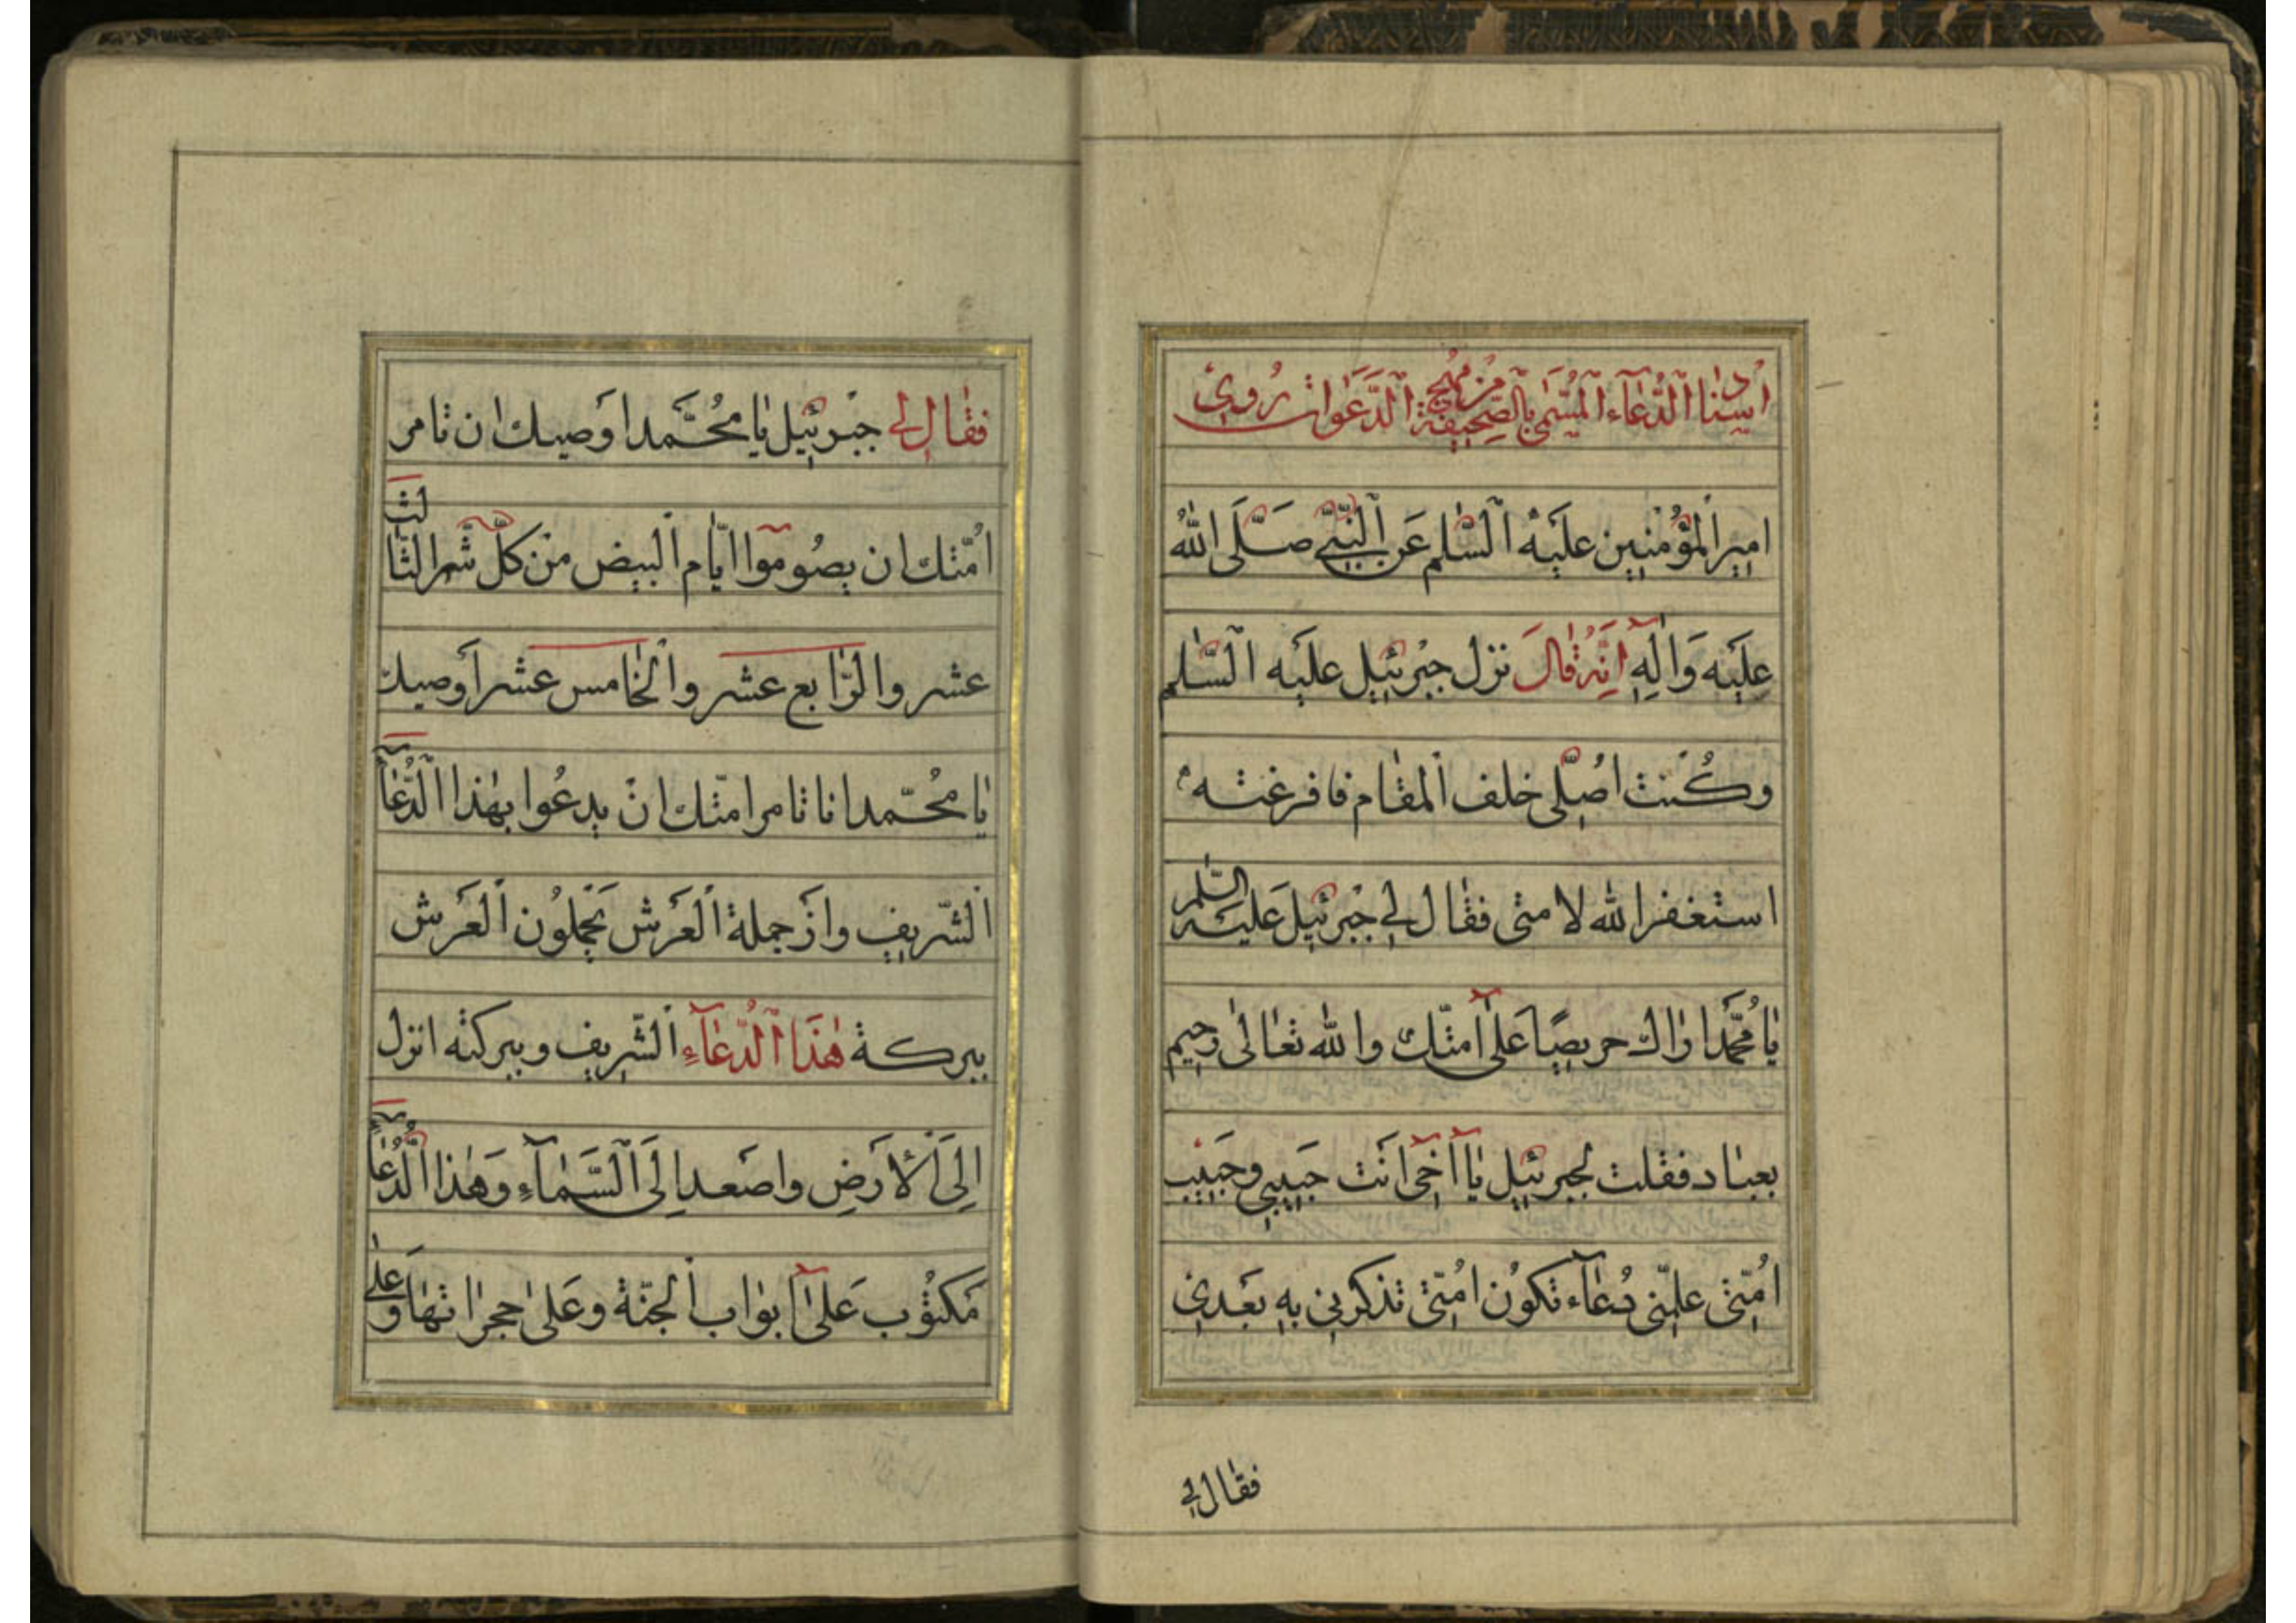 اسناد الدُّعَآء المُسَمّٰى بالصَّحِيفَة من مُهَج الدَّعَوَات رُوِيَ
امِيرِ المُؤْمِنِين عليه السَّلٰم عَن النَّبِيِّ صَلَّى اللهُ
عليه وَاٰلِهِ اَنَّهُ قٰالَ نزل جبرئيل عليه السَّلٰم
وكُنت اُصَلّى خلف المقٰام فافرغته
استغفر الله لامتى فقٰال لى جبرئيل عليه السّلٰم
يٰا مُحَمَّد اراك حريصًا عَلىٰ امتّك والله تعٰالىٰ رحيم
بعبٰاد فقلت لجبرئيل يٰا اَخى اَنت حَبِيبى وحَبِيب
اُمّتى علّمنى دُعٰآء تكوُن اُمّتى تذكرنى بهِ بَعدى
فقٰال لى
فقٰال لى جبرئيل يٰا مُحَمَّد اوَصيك ان تامر
اُمّتك ان يصُوموا ايّام البيض من كلّ شهر الثّالث
عشر والرّابع عشر والخٰامس عشر اَوصيك
يٰا مُحَمّد انا تامر امتّك انْ يدعُوا بهٰذا الدُّعٰآءِ
الشّريف وانَ حملة العَرش يَحملُون العَرش
ببركة هٰذَا الدُّعٰآءِ الشّرِيف وببركته انزل
اِلَى الاَرَضِ واصَعد اِلَى السَّمٰآءِ وَهٰذا الدُّعٰآءُ
مَكتُوب عَلىٰٓ ابوٰاب الجنّة وعَلىٰ حجرٰاتهٰا وَعلىٰ